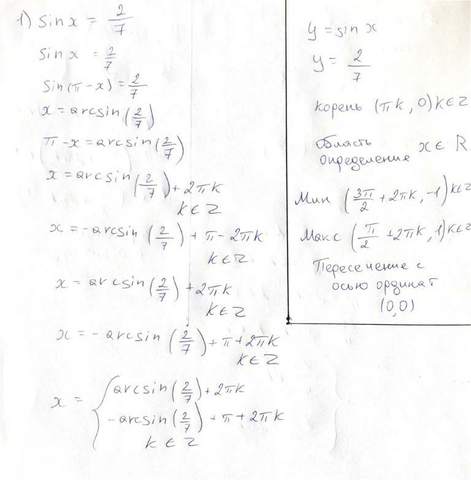 1) sin x = 2/7
sin x = 2/7
sin(π-x) = 2/7
x = arcsin(2/7)
π-x = arcsin(2/7)
x = arcsin(2/7) + 2πk
k∈Z
x = -arcsin(2/7) + π - 2πk
k∈Z
x = arcsin(2/7) + 2πk
k∈Z
x = -arcsin(2/7) + π + 2πk
k∈Z
x = { arcsin(2/7) + 2πk
-arcsin(2/7) + π + 2πk
k∈Z
y = sin x
y = 2/7
корень (πk, 0) k∈Z
область
определение x∈R
Мин (3π/2 + 2πk, -1) k∈Z
Макс (π/2 + 2πk, 1) k∈Z
Пересечение с
осью ординат
(0,0)